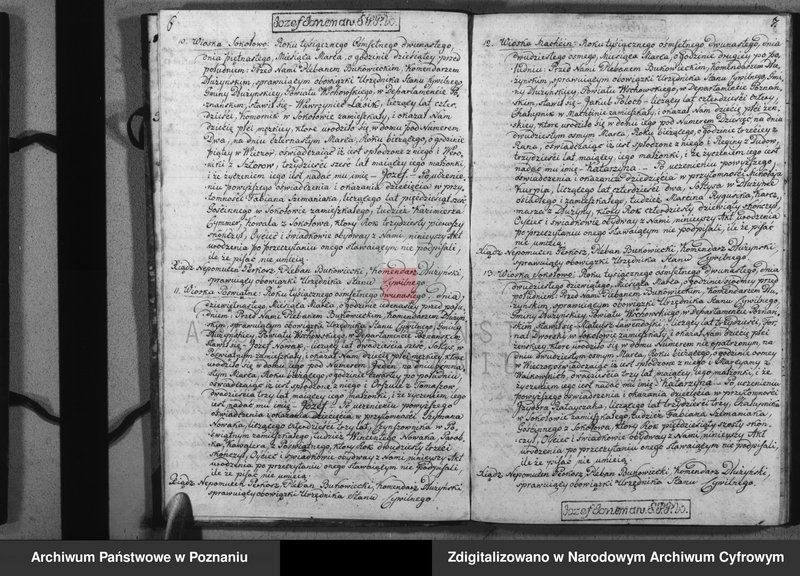 6
Jozef Geneaw. S.P.P. Ko.
10. Wioska Sokołowo: Roku tysiącznego osmsetnego dwunastego,
dnia piętnastego, Miesiąca Marca, o godzinie dziesiątey przed
południem: Przed Nami Plebanem Bukowieckim, Komendarzem
Dłużynskim, sprawuiącym obowiązki Urzędnika Stanu Cywilnego
Gminy Dłużynskiey, Powiatu Wschowskiego, w Departamencie Po-
znańskim, stawił się Wawrzyniec
dzieści, komornik w Sokołowie zamieszkały, i okazał Nam
dziecię płci męzkiey, które urodziło się w domu pod Numerem
Dwa, na dniu czternastym Marca, Roku bieżącego, o godzinie
piątey w Wieczor, oświadczaiąc iż iest spłodzone z niego i
trzydzieści sześć lat maiącey, iego małżonki
i że życzeniem iego iest nadać mu imię Józef. Po uczynie-
niu powyższego oświadczenia i okazaniu dziecięcia w przy-
tomności Fabiana Szymaniaka, liczącego lat pięćdziesiąt sześć
Gościnnego w Sokołowie zamieszkałego, tudzież Kazimierza
kowala z Sokołowa, który Rok trzydziesty pierwszy
skończył, Oyciec i świadkowie obydway z Nami, ninieyszy Akt
urodzenia po przeczytaniu onego stawaiącym niepodpisali,
ile że pisać nie umieią.
Xiądz Nepomucen Perkosz Pleban Bukowiecki, Komendarz Dłużynski
sprawuiący obowiązki Urzędnika Stanu Cywilnego.
11. Wioska Roku tysiącznego osmsetnego dwunastego, dnia
dziewiętnastego, Miesiąca Marca, o godzinie iedenastey przed połu-
dniem: Przed Nami Plebanem Bukowieckim, Komendarzem Dłużyn-
skim, sprawuiącym obowiązki Urzędnika Stanu Cywilnego, Gminy
Dłużynskiey, Powiatu Wschowskiego, w Departamencie Poznańskim,
stawił się Jozef Nowak, liczący lat dwadzieścia sześć,
zamieszkały, i okazał Nam dziecię płci męzkiey, które
urodziło się w domu iego pod Numerem Jeden, na dniu
Marca, Roku bieżącego, o godzinie czwartey po południu,
oświadczaiąc iż iest spłodzone z niego i
dwadzieścia trzy lat maiącey iego małżonki, i że życzeniem iego
iest nadać mu imię Jozef. Po uczynieniu powyższego
oświadczenia i okazaniu dziecięcia, w przytomności
Nowaka, liczącego czterdzieści trzy lat,
zamieszkałego, tudzież Wincentego Nowaka,
który Rok dwudziesty trzeci
skończył, Oyciec i świadkowie obydway z Nami, ninieyszy Akt
urodzenia po przeczytaniu onego stawaiącym niepodpisali,
ile że pisać nie umieią.
Xiądz Nepomucen Perkosz Pleban Bukowiecki, Komendarz Dłużynski,
sprawuiący obowiązki Urzędnika Stanu Cywilnego.
7
12. Wioska Machcin: Roku tysiącznego osmsetnego dwunastego, dnia
dwudziestego osmego, Miesiąca Marca, o godzinie drugiey po po-
łudniu: Przed Nami Plebanem Bukowieckim, Komendarzem Dłu-
żynskim, sprawuiącym obowiązki Urzędnika Stanu Cywilnego, Gmi-
ny Dłużynskiey, Powiatu Wschowskiego, w Departamencie Poznań-
skim, stawił się Jakub Poloch liczący lat czterdzieści cztery,
Chałupnik w Machcinie zamieszkały, i okazał Nam dziecię płci żeń-
skiey, które urodziło się w domu iego pod Numerem Dziesięć, na dniu
dwudziestym osmym Marca, Roku bieżącego, o godzinie trzeciey z
Rana, oświadczaiąc iż iest spłodzone z niego i Reginy z
trzydzieści lat maiącey, iego małżonki, i że życzeniem iego iest
nadać mu imię Katarzyna. Po uczynieniu powyższego
oświadczenia i okazaniu dziecięcia, w przytomności Mikołaja
Kurpia, liczącego lat czterdzieści dwa, Sołtysa w Dłużynie
osiadłego i zamieszkałego, tudzież Marcina
z Dłużyny, który Rok czterdziesty dziewiąty skończył,
Oyciec i świadkowie obydway z Nami ninieyszy Akt urodzenia
po przeczytaniu onego stawaiącym niepodpisali, ile że pisać
nie umieią.
Xiądz Nepomucen Perkosz Pleban Bukowiecki, Komendarz Dłużynski,
sprawuiący obowiązki Urzędnika Stanu Cywilnego.
13. Wioska Sokołowo: Roku tysiącznego osmsetnego dwunastego, dnia
dwudziestego dziewiątego, Miesiąca Marca, o godzinie siodmey przed
południem: Przed Nami Plebanem Bukowieckim, Komendarzem Dłu-
żynskim, sprawuiącym obowiązki Urzędnika Stanu Cywilnego,
Gminy Dłużynskiey, Powiatu Wschowskiego w Departamencie Poznań-
skim stawił się Mateusz liczący lat trzydzieści,
w Sokołowie zamieszkały, i okazał Nam dziecię płci
żenskiey, które urodziło się w domu Numerem nie opatrzonym, na
dniu dwudziestym osmym Marca, Roku bieżącego, o godzinie osmey
w Wieczor, oświadczaiąc iż iest spłodzone z niego i Maryanny z
dwadzieścia trzy lat maiącey, iego małżonki, i że
życzeniem iego iest nadać mu imię Katarzyna. Po uczynieniu
powyższego oświadczenia i okazaniu dziecięcia w przytomności
liczącego lat trzydzieści trzy, Chałupnika
w Sokołowie zamieszkałego, tudzież Fabiana Szymaniaka,
Gościnnego z Sokołowa, który Rok pięćdziesiąty szósty skoń-
czył, Oyciec i świadkowie obydway z Nami, ninieyszy Akt
urodzenia po przeczytaniu onego stawaiącym niepodpisali,
ile że pisać nie umieią.
Xiądz Nepomucen Perkosz Pleban Bukowiecki, Komendarz Dłużynski,
sprawuiący obowiązki Urzędnika Stanu Cywilnego.
Jozef Geneaw. S.P.P. Ko.
Archiwum Państwowe w Poznaniu
Zdigitalizowano w Narodowym Archiwum Cyfrowym